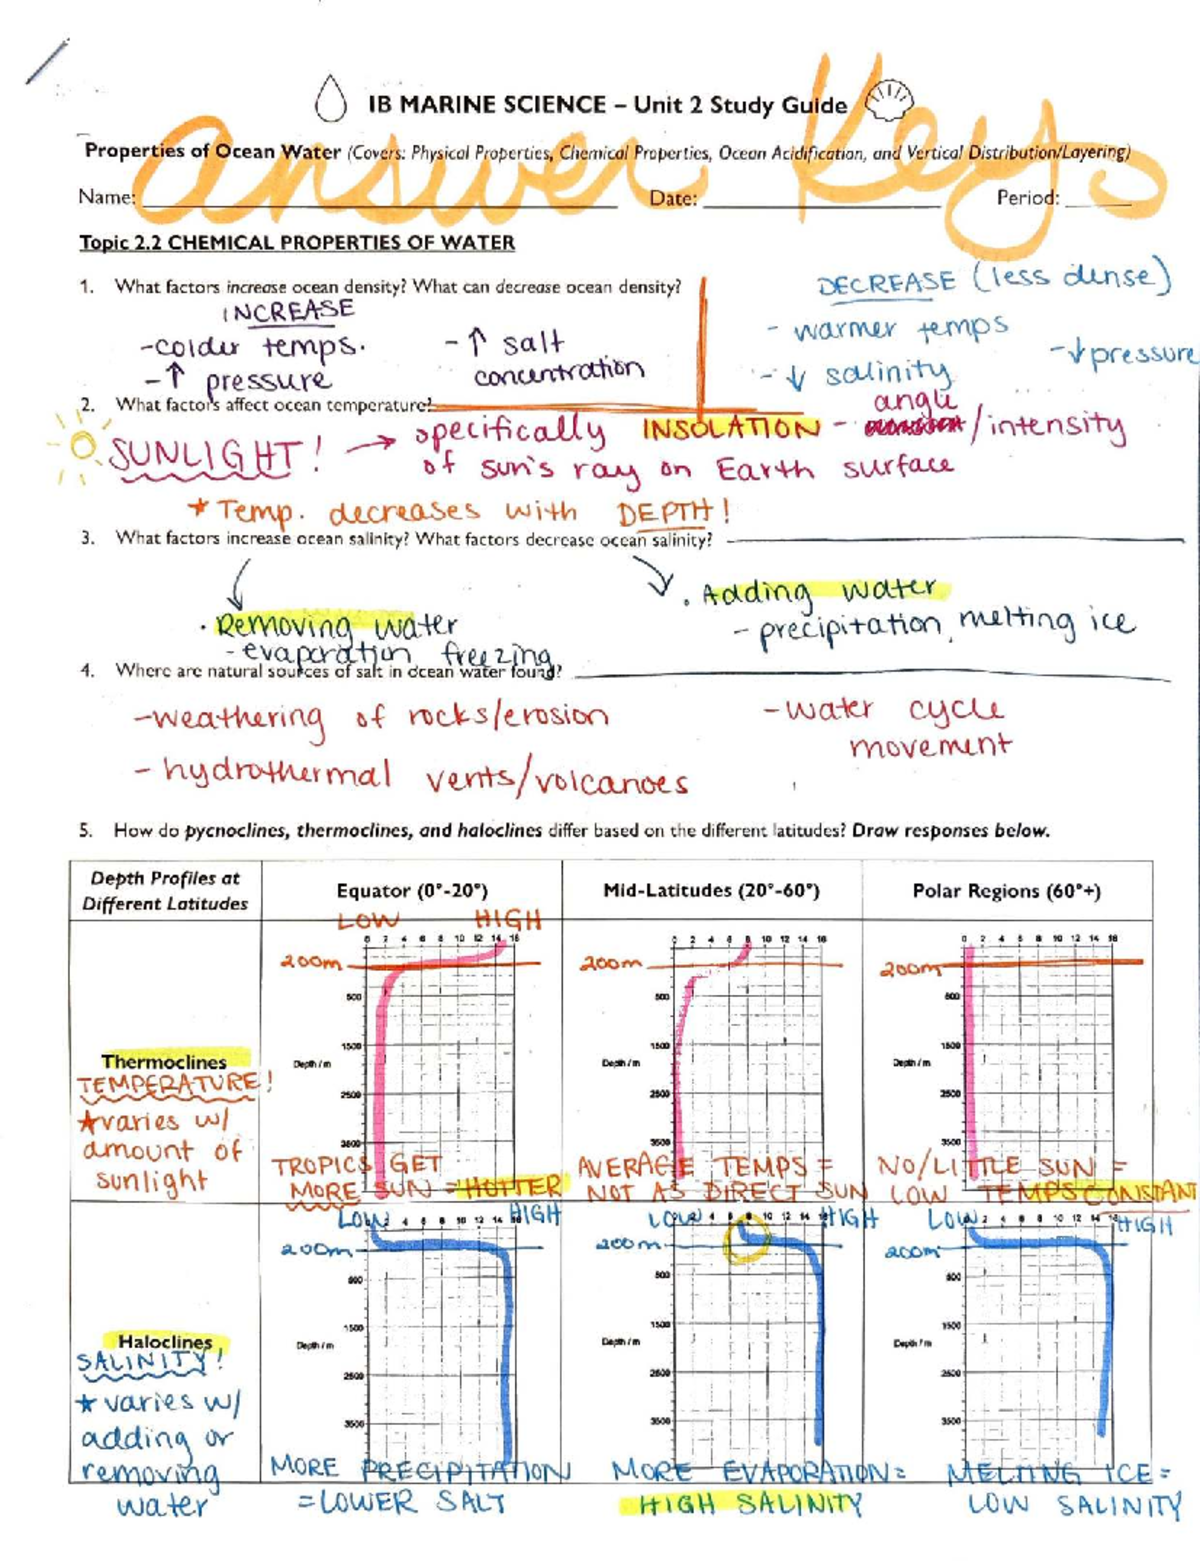 IB MARINE SCIENCE – Unit 2 Study Guide
answer Keys
Properties of Ocean Water (Covers: Physical Properties, Chemical Properties, Ocean Acidification, and Vertical Distribution/Layering)
Name: Date: Period:
Topic 2.2 CHEMICAL PROPERTIES OF WATER
1. What factors increase ocean density? What can decrease ocean density?
INCREASE
-colder temps.
-↑ pressure
-↑ salt
concentration
DECREASE (less dense)
- warmer temps
-↓ salinity
-↓ pressure
2. What factors affect ocean temperature?
SUNLIGHT! → specifically INSOLATION - angle/intensity
of sun's ray on Earth surface
* Temp. decreases with DEPTH!
3. What factors increase ocean salinity? What factors decrease ocean salinity?
· Removing water
-evaporation freezing
· Adding water
- precipitation, melting ice
4. Where are natural sources of salt in ocean water found?
-weathering of rocks/erosion
- hydrothermal vents/volcanoes
-water cycle
movement
5. How do pycnoclines, thermoclines, and haloclines differ based on the different latitudes? Draw responses below.
Depth Profiles at
Different Latitudes
Equator (0°-20°)
Mid-Latitudes (20°-60°)
Polar Regions (60°+)
Thermoclines
TEMPERATURE!
★varies w/
amount of
sunlight
LOW HIGH
0 2 4 6 8 10 12 14 16
200m
500
1500
Depth / m
2500
3500
TROPICS GET
MORE SUN = HOTTER
0 2 4 6 8 10 12 14 16
200m
500
1500
Depth / m
2500
3500
AVERAGE TEMPS =
NOT AS DIRECT SUN
0 2 4 6 8 10 12 14 16
200m
500
1500
Depth / m
2500
3500
NO/LITTLE SUN =
LOW TEMPS CONSTANT
Haloclines
SALINITY!
★ varies w/
adding or
removing
water
LOW HIGH
4 6 8 10 12 14 16
200m
500
1500
Depth / m
2500
3500
MORE PRECIPITATION
=LOWER SALT
LOW HIGH
4 6 8 10 12 14 16
200m
500
1500
Depth / m
2500
3500
MORE EVAPORATION=
HIGH SALINITY
LOW HIGH
2 4 6 8 10 12 14 16
200m
500
1500
Depth / m
2500
3500
MELTING ICE=
LOW SALINITY